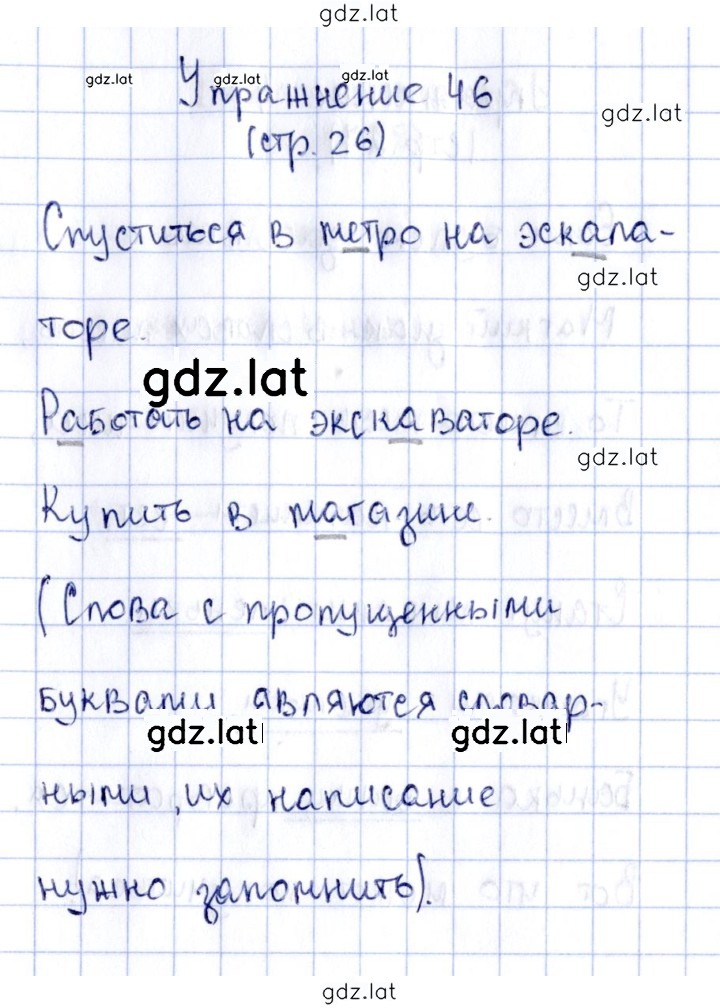 gdz.lat
gdz.lat gdz.lat gdz.lat
Упражнение 46
gdz.lat
(стр. 26)
Спуститься в метро на эскала-
gdz.lat
торе.
gdz.lat
Работать на экскаваторе.
gdz.lat
Купить в магазине.
(Слова с пропущенными
буквами являются словар-
gdz.lat gdz.lat
ными, их написание
нужно запомнить).
gdz.lat